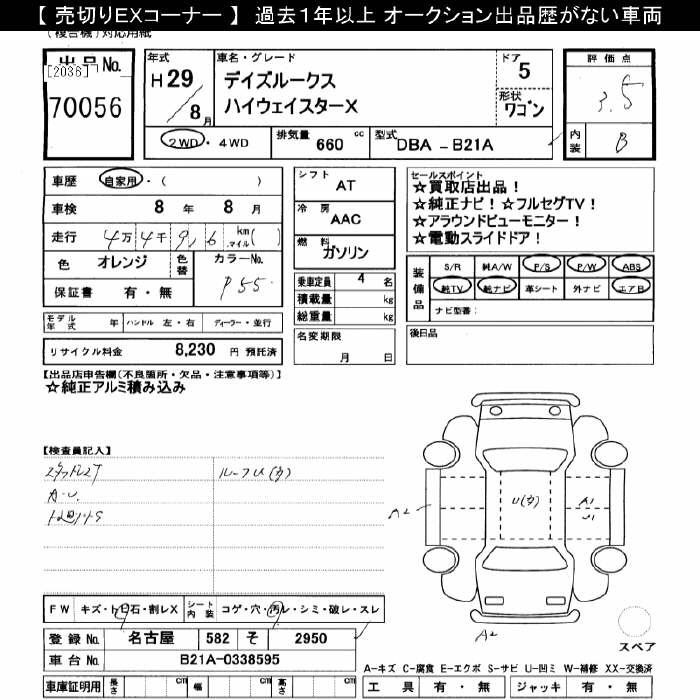 【 売切りEXコーナー 】 過去1年以上 オークション出品歴がない車両
(複合機)対応用紙
出品No.
[2036]
70056
年式
H29/8月
車名・グレード
デイズルークス
ハイウェイスターX
ドア
5
形状
ワゴン
評価点
3.5
内装
B
2WD・4WD
排気量 660 cc
型式 DBA -B21A
車歴 自家用・( )
車検 8 年 8 月
走行 4万4千9,6 km マイル( )
色 オレンジ 色替 カラーNo. P55
保証書 有・無
シフト AT
冷房 AAC
燃料 ガソリン
乗車定員 4 名
積載量 kg
総重量 kg
セールスポイント
☆買取店出品!
☆純正ナビ!☆フルセグTV!
☆アラウンドビューモニター!
☆電動スライドドア!
装備品
S/R 純A/W P/S P/W ABS
純TV 純ナビ 革シート 外ナビ エアB
ナビ型番:
モデル年式 年 ハンドル 左・右 ディーラー・並行
リサイクル料金 8,230 円 預託済
名変期限
月 日
後日品
【出品店申告欄(不良箇所・欠品・注意事項等)】
☆純正アルミ積み込み
【検査員記入】
ルーフU(カ)
A・U.
A2
U(カ)
A1
U1
A2
スペア
FW キズ・トビ石・割レX シート内装 コゲ・穴・汚レ・シミ・破レ・スレ
登録No. 名古屋 582 そ 2950
車台No. B21A-0338595
車庫証明用 長さ cm 幅 cm 高さ cm
A-キズ C-腐食 E-エクボ S-サビ U-凹ミ W-補修 XX-交換済
工具 有・無 ジャッキ 有・無